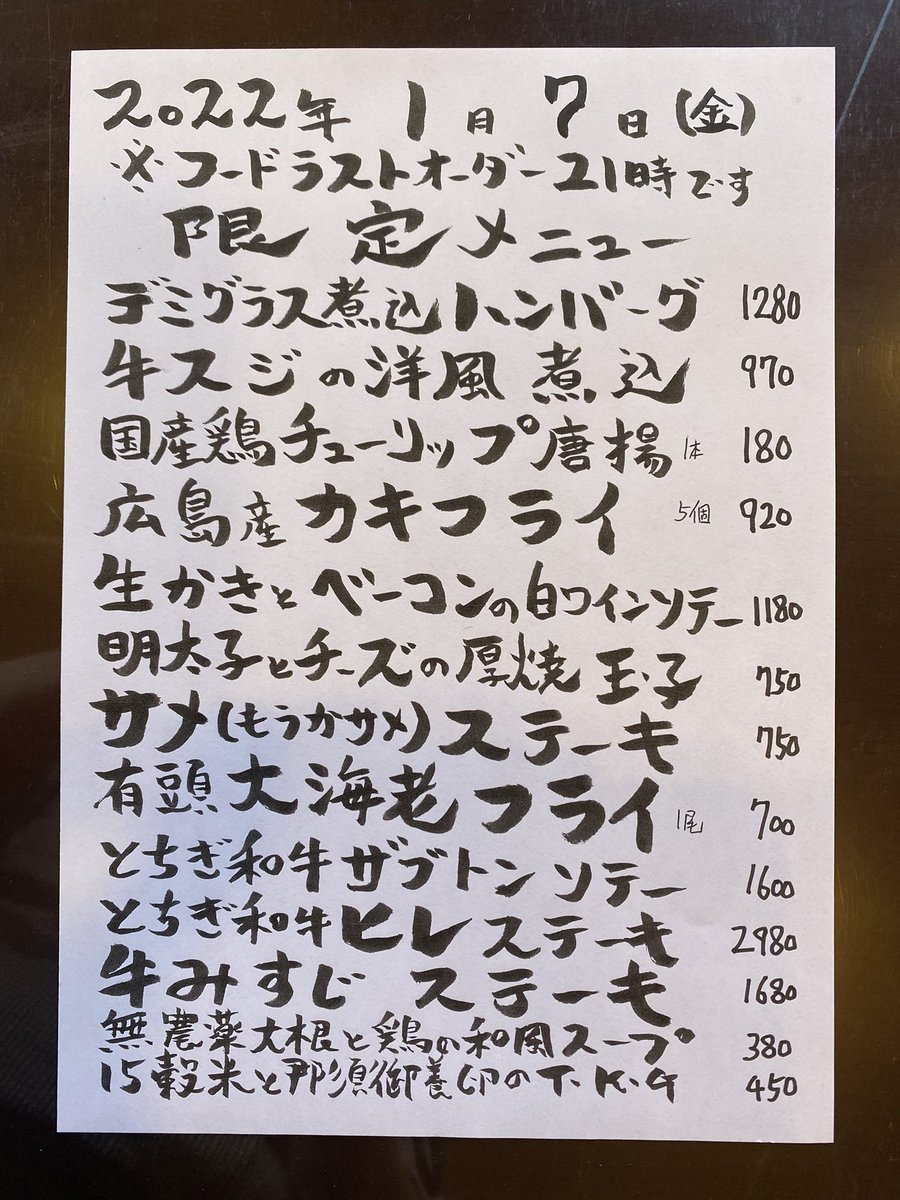 2022年 1月 7日(金)
※フードラストオーダー21時です
限定メニュー
デミグラス煮込ハンバーグ 1280
牛スジの洋風煮込 970
国産鶏チューリップ唐揚 1本 180
広島産カキフライ 5個 920
生かきとベーコンの白ワインソテー 1180
明太子とチーズの厚焼玉子 750
サメ(もうかサメ)ステーキ 750
有頭大海老フライ 1尾 700
とちぎ和牛ザブトンソテー 1600
とちぎ和牛ヒレステーキ 2980
牛みすじステーキ 1680
無農薬大根と鶏の和風スープ 380
15穀米と那須御養卵のT.K.G 450